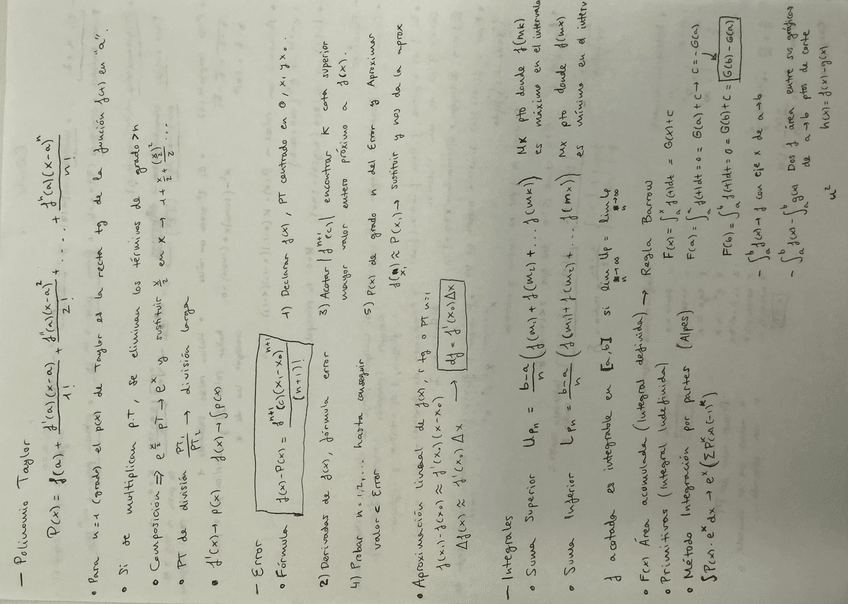 — Polinomio Taylor
P(x) = f(a) + f'(a)(x-a)/1! + f''(a)(x-a)²/2! + .... + fⁿ(a)(x-a)ⁿ/n!
• Para n=1 (grado) el p(x) de Taylor es la recta tg de la función f(x) en "a".
• Si se multiplican p.T, se eliminan los términos de grado >n
• Composición => e^(x/2) PT → e^x y sustituir x/2 en x → 1 + x/2 + (x/2)²/2 ...
• PT de división PT₁/PT₂ → división larga
• f'(x) → p(x) f(x) → ∫p(x)
— Error
• Fórmula f(x)-P(x) = fⁿ⁺¹(c)(x₁-x₀)ⁿ⁺¹/(n+1)! 1) Declarar f(x), PT centrado en 0, x₁ y x₀.
2) Derivadas de f(x), fórmula error 3) Acotar |fⁿ⁺¹(c)| encontrar K cota superior
mayor valor entero próximo a f(x).
4) Probar n=1,2,... hasta conseguir 5) P(x) de grado n del Error y Aproximar
valor < Error ≈ P(x₁) → sustituir y nos da la aprox
• Aproximación lineal de f(x), r tg o PT n=1
f(x₁)-f(x₀) ≈ f'(x₀)(x-x₀)
Δf(x) ≈ f'(x₀)Δx → df = f'(x₀)Δx
— Integrales
• Suma Superior Upₙ = b-a/n (f(m₁) + f(m₂) + ... f(mk)) Mk pto donde f(mk)
es máximo en el intervalo
• Suma Inferior Lpₙ = b-a/n (f(m₁) + f(m₂) + ... f(mx)) Mx pto donde f(mx)
es mínimo en el interv
f acotada es integrable en [a,b] si lim Up = lim Lp
n→∞ n→∞
• F(x) Área acumulada (Integral definida) → Regla Barrow
• Primitivas (Integral Indefinida) F(x) = ∫ₐˣ f(t)dt = G(x)+C
• Método Integración por partes (Alpes) F(a) = ∫ₐᵃ f(t)dt = 0 = G(a)+C → C = -G(a)
∫P(x)·eˣdx → eˣ(ΣPᵏ(x)(-1)ᵏ) F(b) = ∫ₐᵇ f(t)dt = 0 = G(b)+C = G(b)-G(a)
– ∫ₐᵇ f(x) → f con eje x de a→b
– ∫ₐᵇ f(x) - ∫ₐᵇ g(x) Dos f área entre sus gráficas
de a→b ptos de corte
u² h(x) = f(x)-g(x)